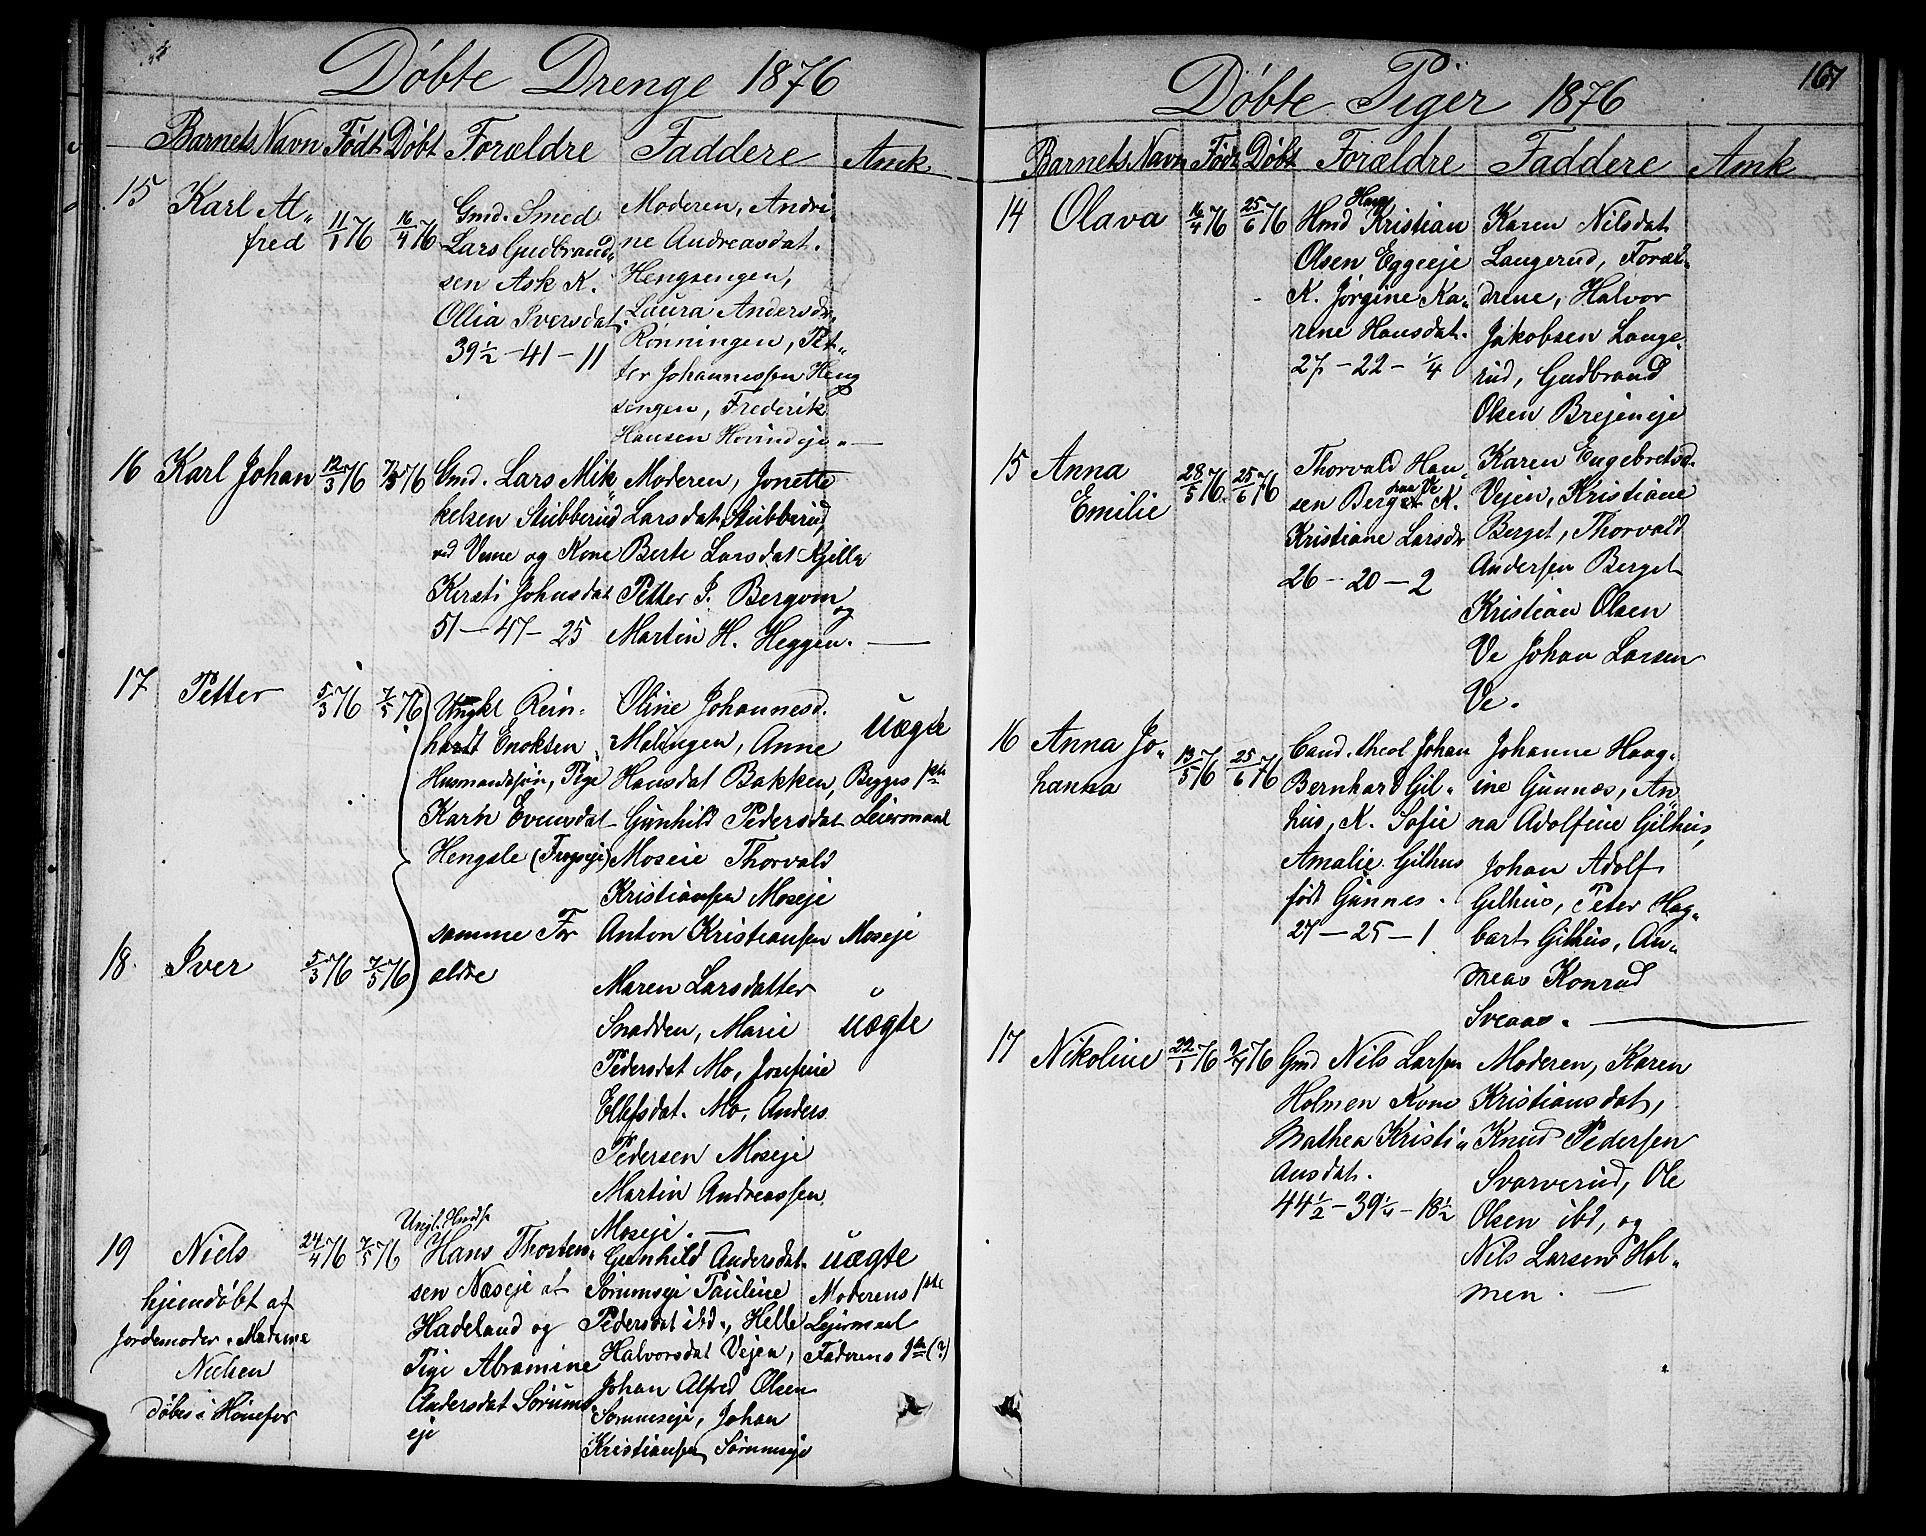 Døbte Drenge 1876
Barnets Navn Født Døbt Forældre Faddere Amk
15 Karl Al-
fred
11/1 76 16/4 76
Gmd. Smed
Lars Gudbrand-
sen Ask K.
Ollia Iversdat.
39½ - 41 - 11
Moderen, Andri-
ne Andreasdat.
Hengsengen,
Laura Andersdr.
Rønningen, Pet-
ter Johannessen Heng
sengen, Frederik
Hansen Hovindeje. —
16 Karl Johan 12/3 76 7/5 76
Gmd. Lars Mik
kelsen Stubberud
ved Veme og Kone
Kersti Johnsdat
51 - 47 - 25
Moderen, Jonette
Larsdat Stubberud
Berte Larsdat Kjilla
Petter J. Bergom og
Martin H. Heggen. —
17 Petter 5/3 76 7/5 76
Ungkl Rein-
hardt Enoksen
Husmandssøn, Pige
Karh Evensdat
Hengsle (Fregseje)
Oline Johannesd.
Malingen, Anne
Hansdat Bakken,
Gunhild Pedersdat
Moseie Thorvald
Kristiansen Moseje
Anton Kristiansen Moseje
uægte
Begges 1ste
Leiermaal
18. Iver 5/3 76 7/5 76
samme For
ældre
Maren Larsdatter
Snadden, Marie
Pedersdat Mo, Josefine
Ellefsdat. Mo, Anders
Pedersen Moseje
Martin Andreassen
Moseje. —
uægte
19 Niels 24/4 76 7/5 76
hjemdøbt af
Jordemoder. Madame
Nielsen
døbes i Hønefos
Ungk. Hmdss
Hans Thosten-
sen Næseje at
Hadeland og
Pige Abramine
Andersdat Sørums
eje
Gunhild Andersdat.
Sørumseje Pauline
Pedersdat ibd., Helle
Halvorsdat Vejen,
Johan Alfred Olsen
Sørumseje, Johan
Kristiansen Sørumseje
uægte
Moderens 1ste
Lejermaal
Faderens 1ste (?)
167
Døbte Piger 1876
Barnets Navn Født Døbt Forældre Faddere Amk
14 Olava 16/4 76 25/6 76
Hans
Hmd Kristian
Olsen Eggeeje
K. Jørgine Ka-
rene Hansdat.
27 - 22 - ¼
Karen Nilsdat
Langerud, Foræl-
drene, Halvor
Jakobsen Lange-
rud, Gudbrand
Olsen Brejeneje
15 Anna
Emilie
28/5 76 25/6 76
Thorvald Han-
sen Berget paa Ve K.
Kristiane Larsdr
26 - 20 - 2
Karen Engebretsd.
Vejen, Kristiane
Berget, Thorvald
Andersen Berget
Kristian Olsen
Ve Johan Larsen
Ve.
16 Anna Jo-
hanna
13/5 76 25/6 76
Cand. theol Johan
Bernhard Gil-
hus, K. Sofie
Amalie Gilhus
født Gunnes.
27 - 25 - 1
Johanne Haag-
ine Gunnes, An
na Adolfine Gilhus,
Johan Adolf
Gilhus, Peter Hag-
bart Gilhus, An-
dreas Konrad
Sveaas. —
17 Nikoline 22/1 76 2/7 76
Gmd Nils Larsen
Holmen Kone
Mathea Kristi-
ansdat.
44½ - 39¼ - 18½
Moderen, Karen
Kristiansdat,
Knud Pedersen
Svarverud, Ole
Olsen ibd, og
Nils Larsen Hol-
men. —